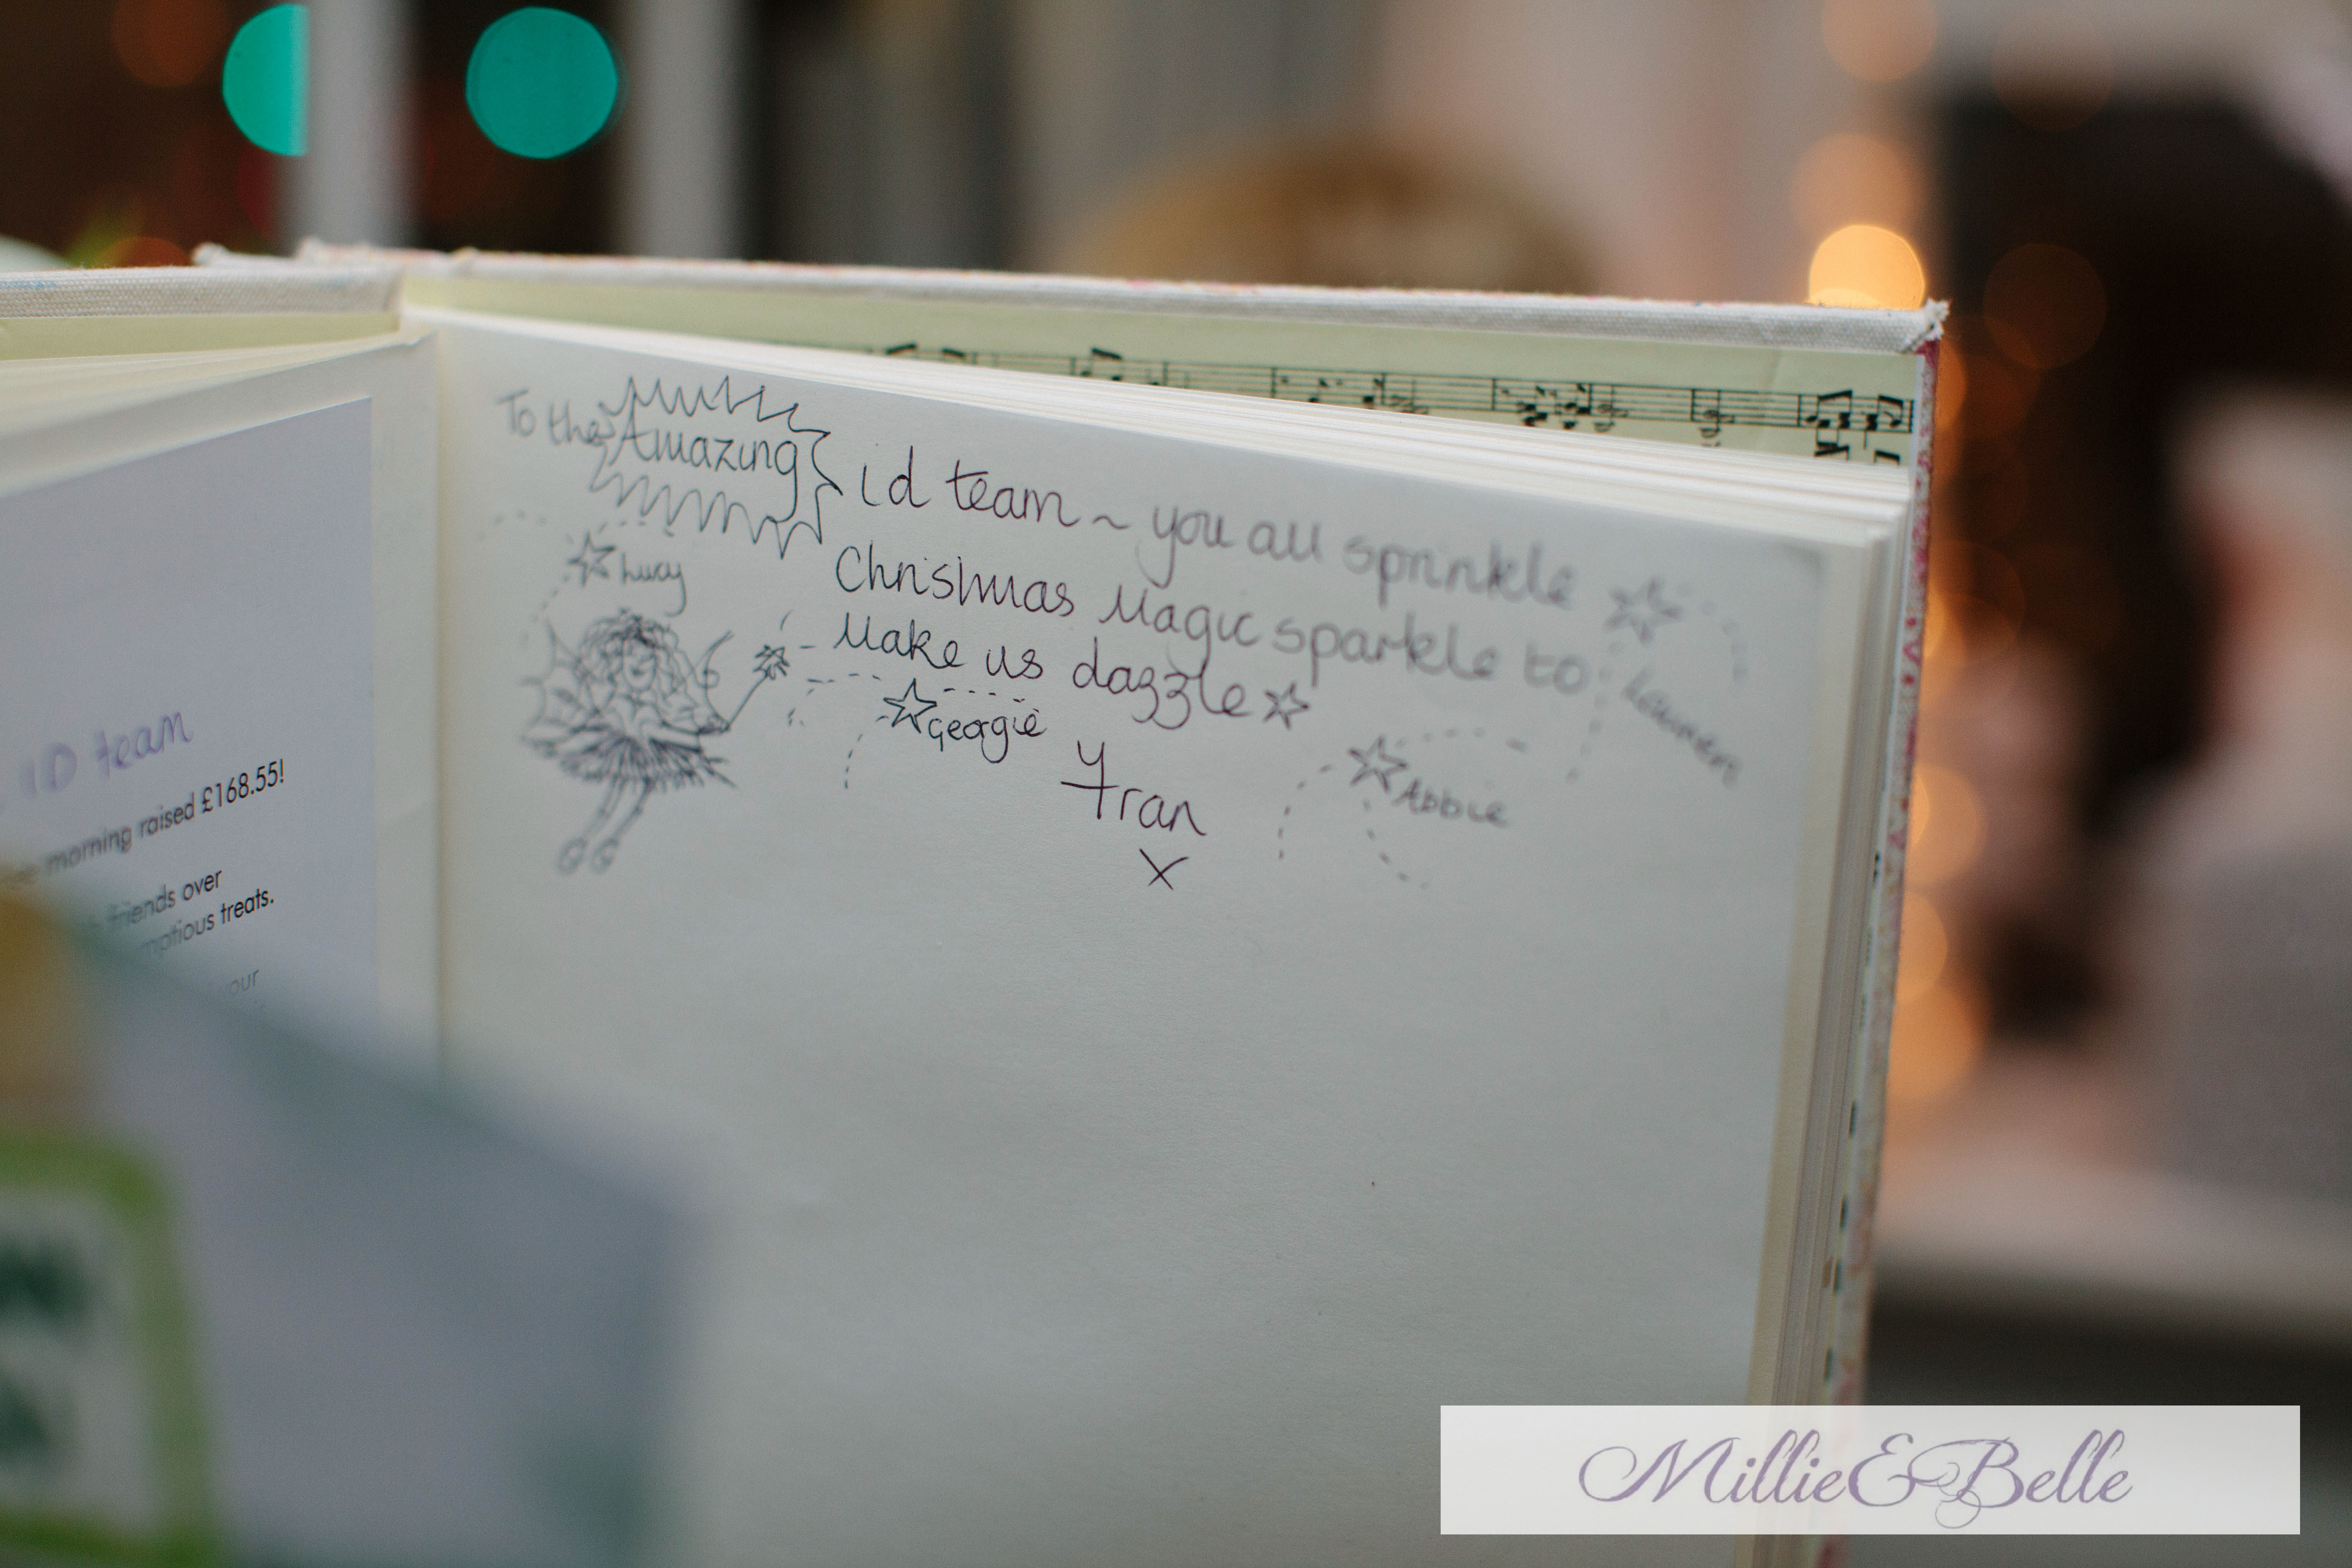 ID team
morning raised £168.55!
friends over
treats.
our
To the Amazing id team ~ you all sprinkle
Christmas Magic sparkle to
Make us dazzle
Lucy
Georgie
Lauren
Abbie
Fran
X
Millie & Belle